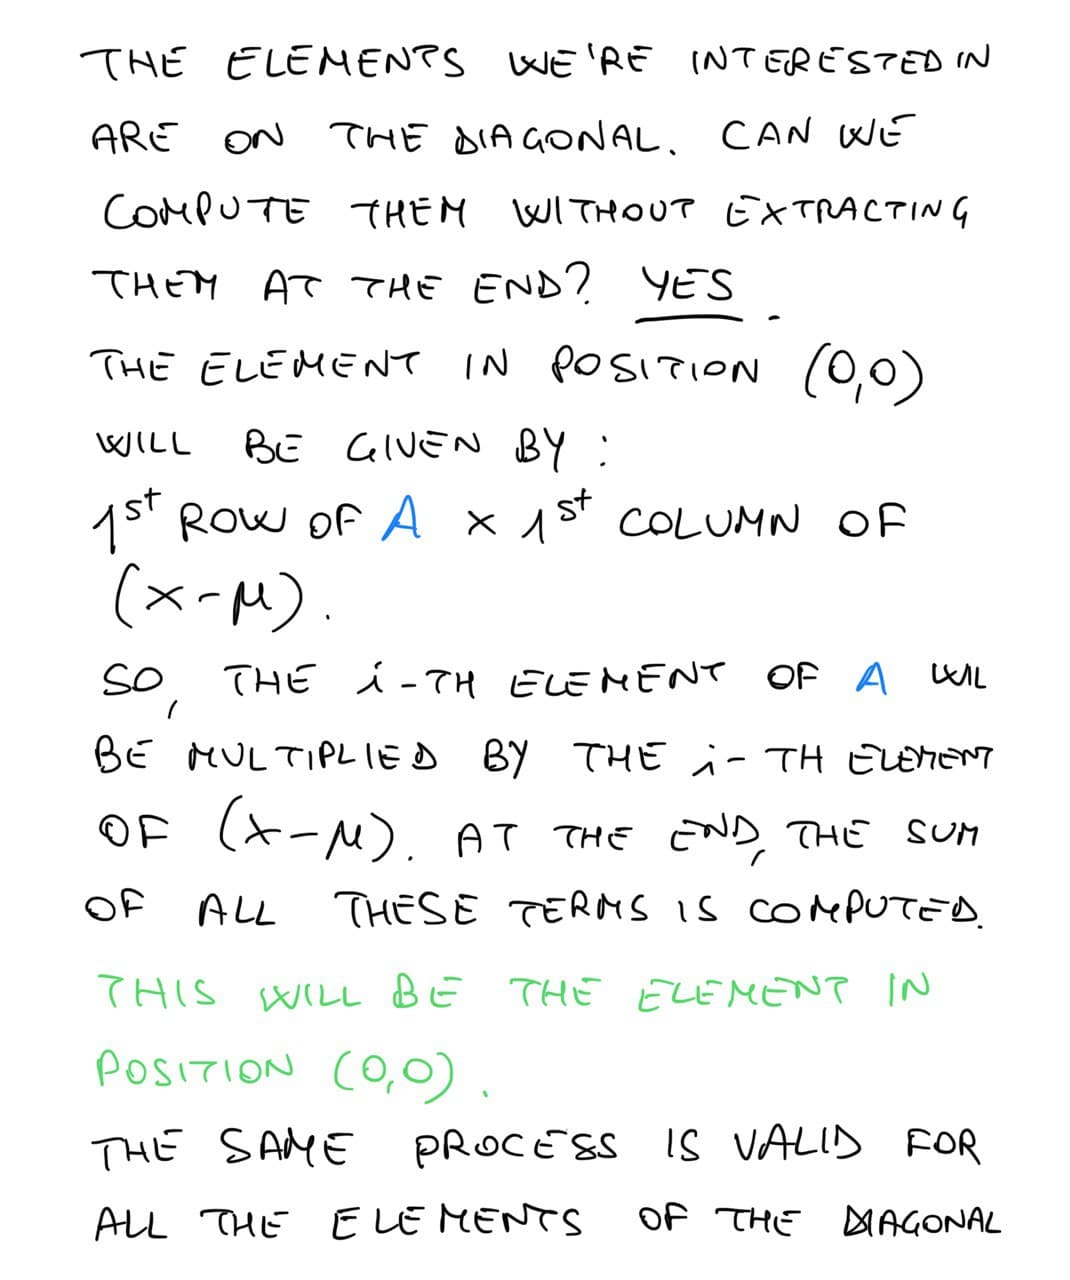 THE ELEMENTS WE'RE INTERESTED IN
ARE ON THE DIAGONAL. CAN WE
COMPUTE THEM WITHOUT EXTRACTING
THEM AT THE END? YES.
THE ELEMENT IN POSITION (0,0)
WILL BE GIVEN BY:
1st ROW OF A × 1st COLUMN OF
(x-μ).
SO, THE i-TH ELEMENT OF A WIL
BE MULTIPLIED BY THE i-TH ELEMENT
OF (x-μ). AT THE END, THE SUM
OF ALL THESE TERMS IS COMPUTED.
THIS WILL BE THE ELEMENT IN
POSITION (0,0).
THE SAME PROCESS IS VALID FOR
ALL THE ELEMENTS OF THE DIAGONAL